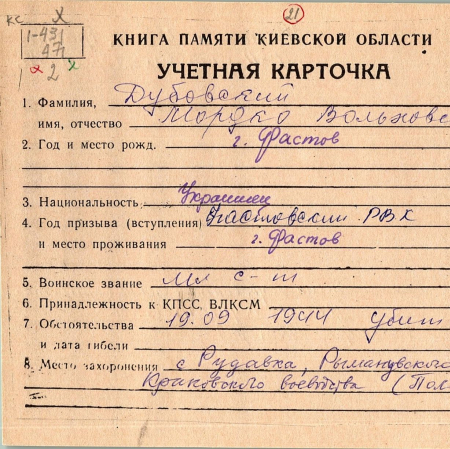 кс х 21
1-431
471
х 2 х
КНИГА ПАМЯТИ КИЕВСКОЙ ОБЛАСТИ
УЧЕТНАЯ КАРТОЧКА
1. Фамилия, Дубовский
имя, отчество Мордко Вольховс
2. Год и место рожд. г. Фастов
3. Национальность Украинец
4. Год призыва (вступления) Фастовским РВК
и место проживания г. Фастов
5. Воинское звание Мл с-т
6. Принадлежность к КПСС, ВЛКСМ
7. Обстоятельства 19.09 1944 убит
и дата гибели
8. Место захоронения с Рудавка, Рымановского
Краковского воеводства (Пол